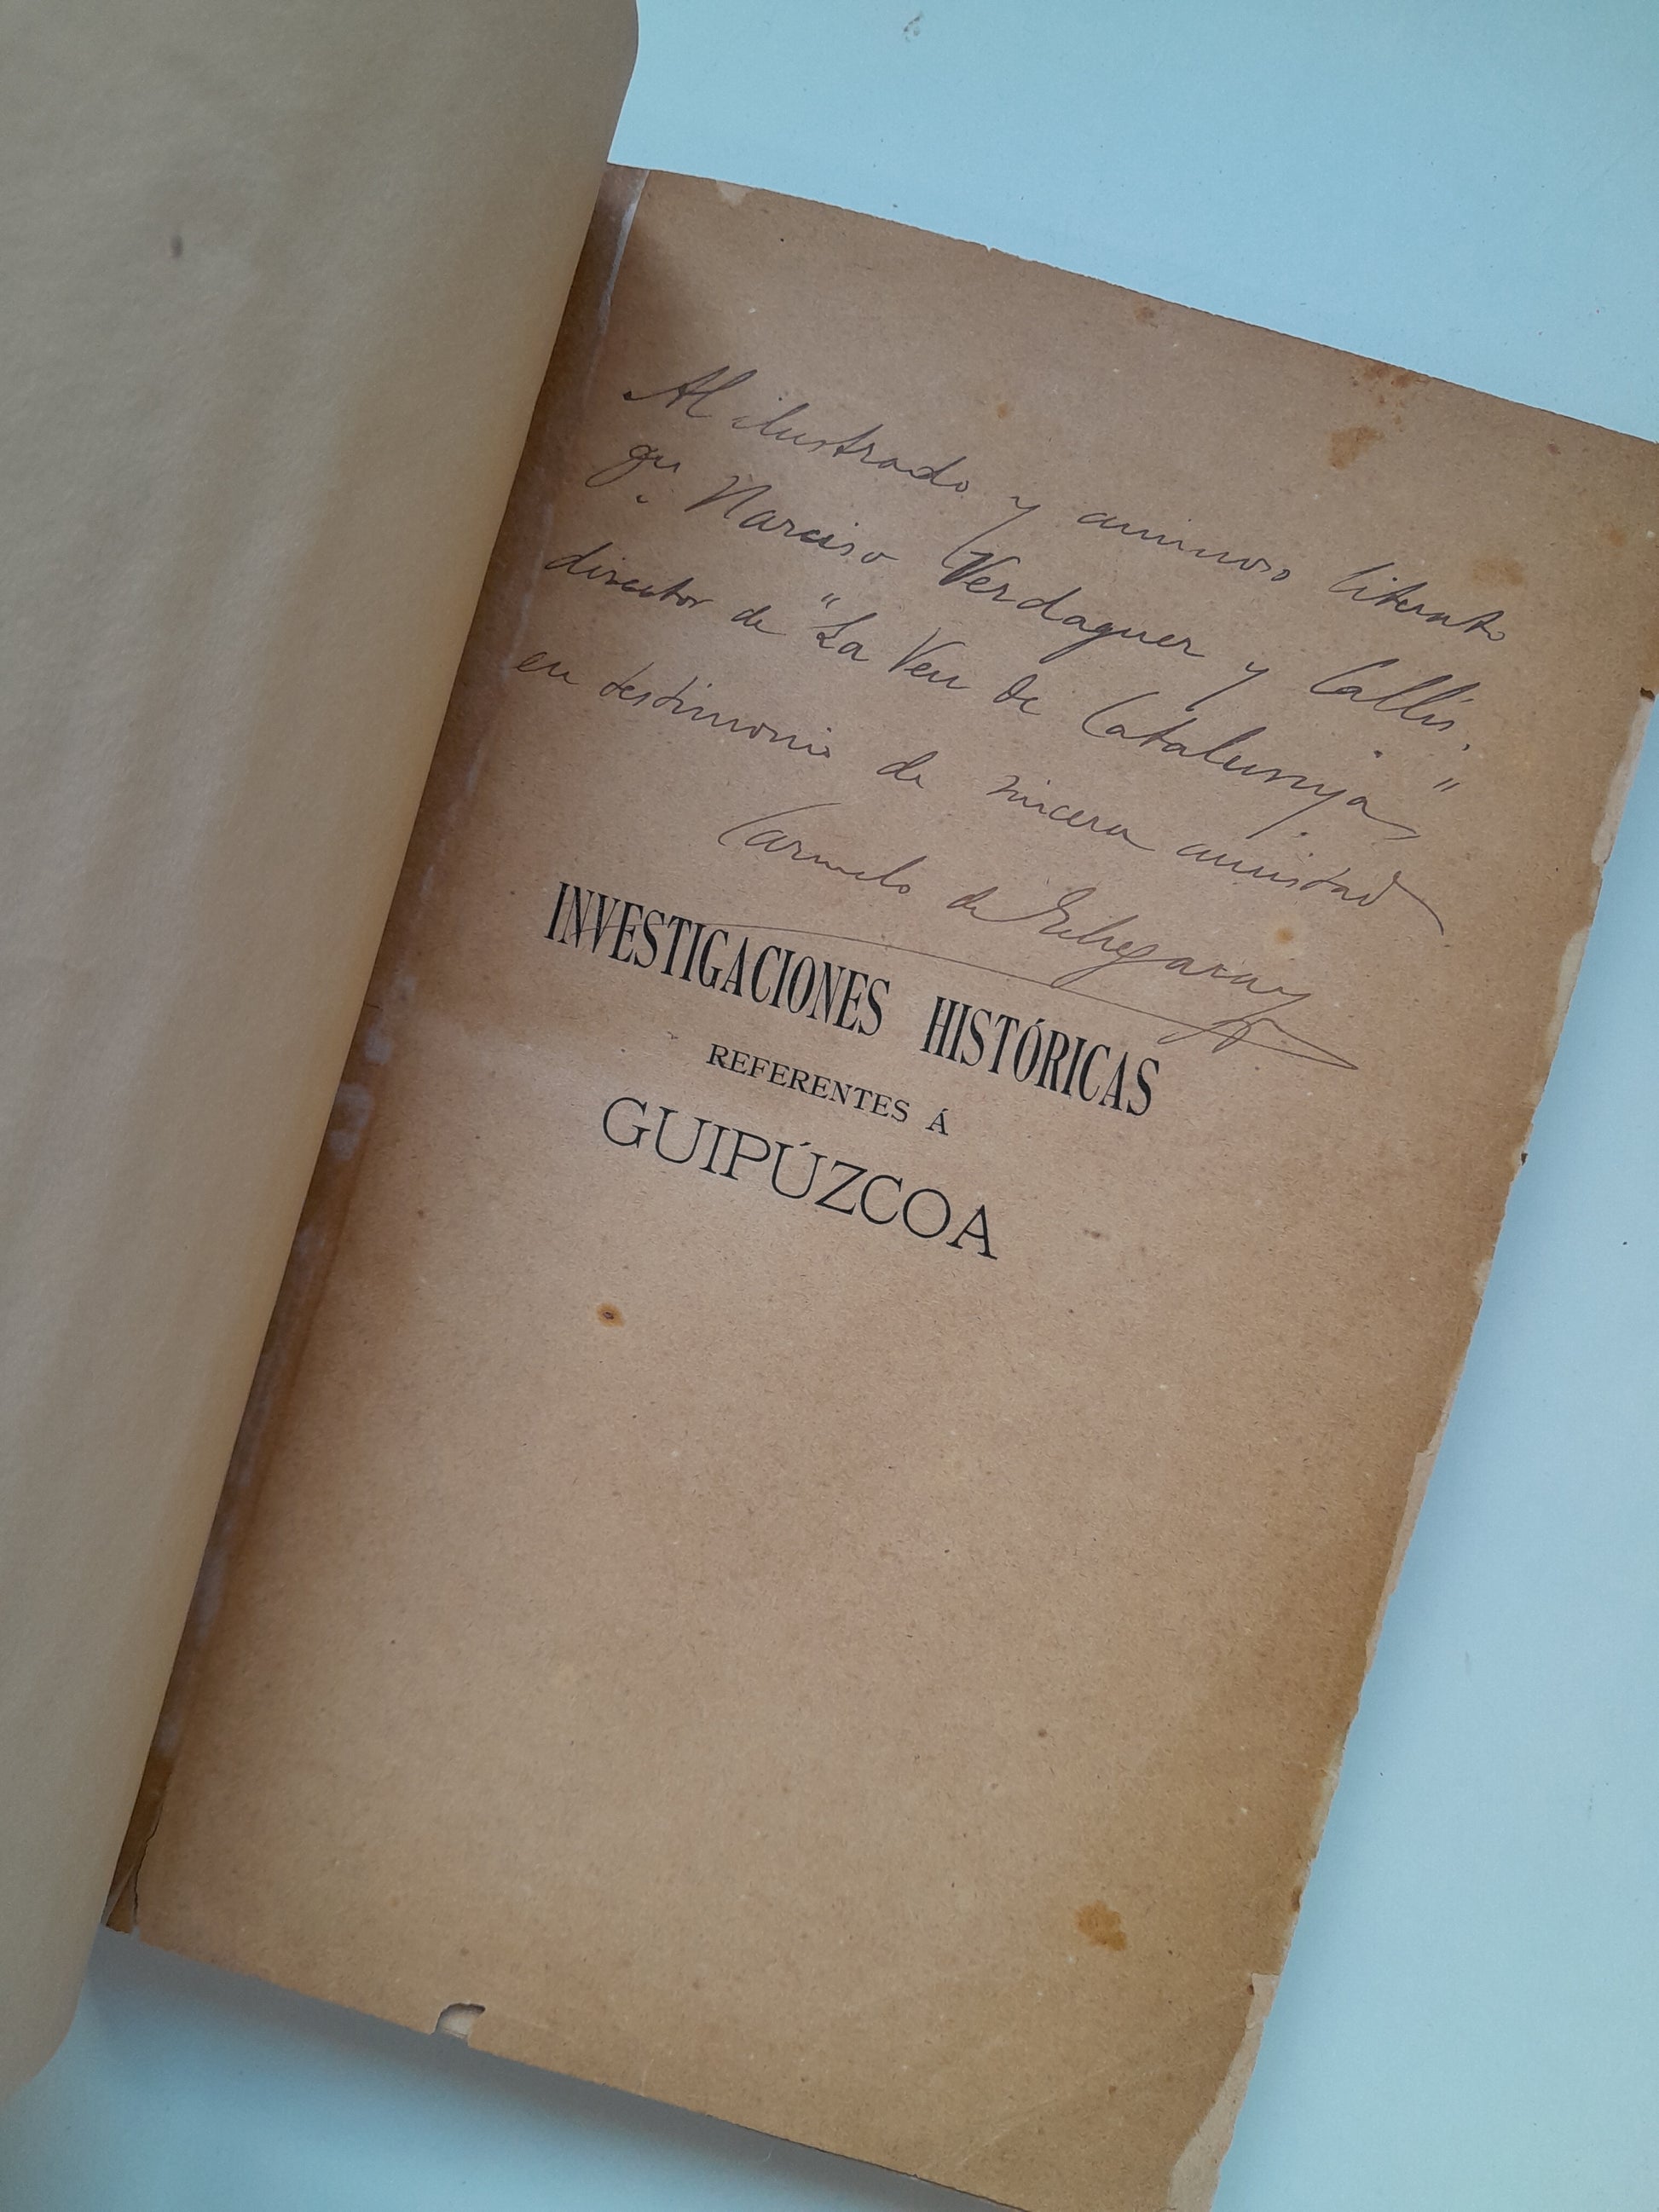 Al ilustrado y animoso literato
Narciso Verdaguer y Callís,
director de "La Veu de Catalunya,"
en testimonio de sincera amistad
Carmelo de Echegaray
INVESTIGACIONES HISTÓRICAS
REFERENTES Á
GUIPÚZCOA